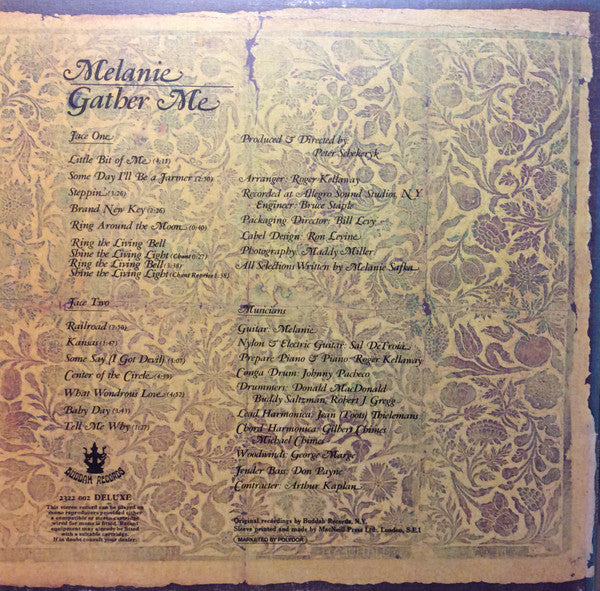 Melanie
Gather Me
Face One
Little Bit of Me (4:11)
Some Day I'll Be a Farmer (2:50)
Steppin
Brand New Key (2:26)
Ring Around the Moon (0:40)
Ring the Living Bell
Shine the Living Light (Chant 0:27)
Ring the Living Bell
Shine the Living Light (Chant Reprise 1:38)
Face Two
Railroad (2:50)
Kansas (1:47)
Some Say (I Got Devil) (3:07)
Center of the Circle (4:39)
What Wondrous Love (4:52)
Baby Day (3:43)
Tell Me Why (1:27)
BUDDAH RECORDS
2322 002 DELUXE
This stereo record can be played on
mono reproducers provided either
a compatible or stereo cartridge
wired for mono is fitted. Recent
equipment may already be fitted
with a suitable cartridge.
If in doubt consult your dealer.
Produced & Directed by
Peter Schekeryk
Arranger: Roger Kellaway
Recorded at Allegro Sound Studios, N.Y.
Engineer: Bruce Staple
Packaging Director: Bill Levy
Label Design: Ron Levine
Photography: Maddy Miller
All Selections Written by Melanie Safka
Musicians
Guitar: Melanie
Nylon & Electric Guitar: Sal DeTroia
Prepare Piano & Piano: Roger Kellaway
Conga Drum: Johnny Pacheco
Drummers: Donald MacDonald
Buddy Saltzman, Robert J Gregg
Lead Harmonica: Jean (Toots) Thielemans
Chord Harmonica: Gilbert Chimes
Michael Chimes
Woodwinds: George Marge
Fender Bass: Don Payne
Contracter: Arthur Kaplan
Original recordings by Buddah Records, N.Y.
Sleeve printed and made by MacNeill Press Ltd., London, S.E.1
MARKETED BY POLYDOR